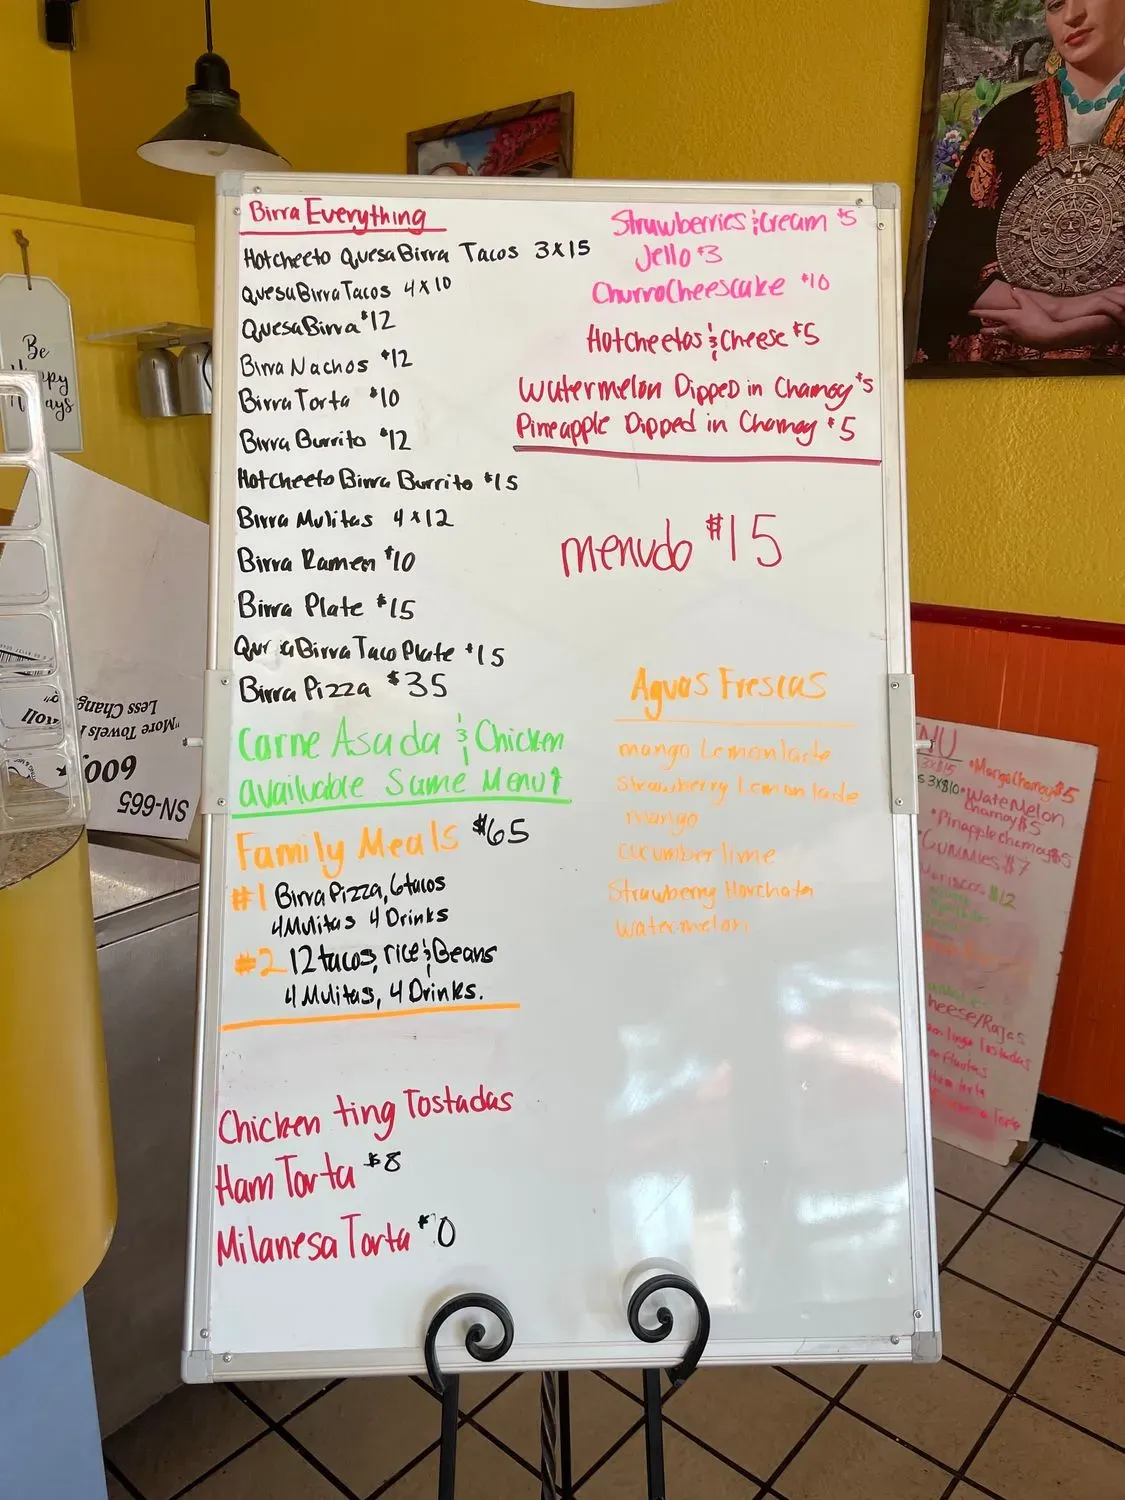 Birra Everything
Hotcheeto QuesaBirra Tacos 3x15
QuesaBirraTacos 4x10
QuesaBirra $12
Birra Nachos $12
Birra Torta $10
Birra Burrito $12
Hotcheeto Birra Burrito $15
Birra Mulitas 4x12
Birra Ramen $10
Birra Plate $15
BirraTacoPlate $15
Birra Pizza $35
Carne Asada & Chicken
available Same Menu!
Family Meals $65
#1 Birra Pizza, 6tacos
4Mulitas 4 Drinks
#2 12tacos, rice & Beans
4 Mulitas, 4 Drinks.
Chicken ting Tostadas
Ham Torta $8
Milanesa Torta $ 0
Strawberries & Cream $5
Jello $3
ChurroCheescake $10
Hotcheetos & Cheese $5
Watermelon Dipped in Chamoy $5
Pineapple Dipped in Chamoy $5
menudo $15
Aguas Frescas
mango Lemonlade
Strawberry Lemonlade
mango
cucumber lime
Strawberry Horchata
watermelon
Be
"More Towels
Less Chang
600
SN-665
NU
3x$15
3x$10
•MangoChamoy$5
•WateMelon
Chamoy$5
•PineappleChamoy$5
•GUMMIES $7
$12
heese/Rajas
Tostadas